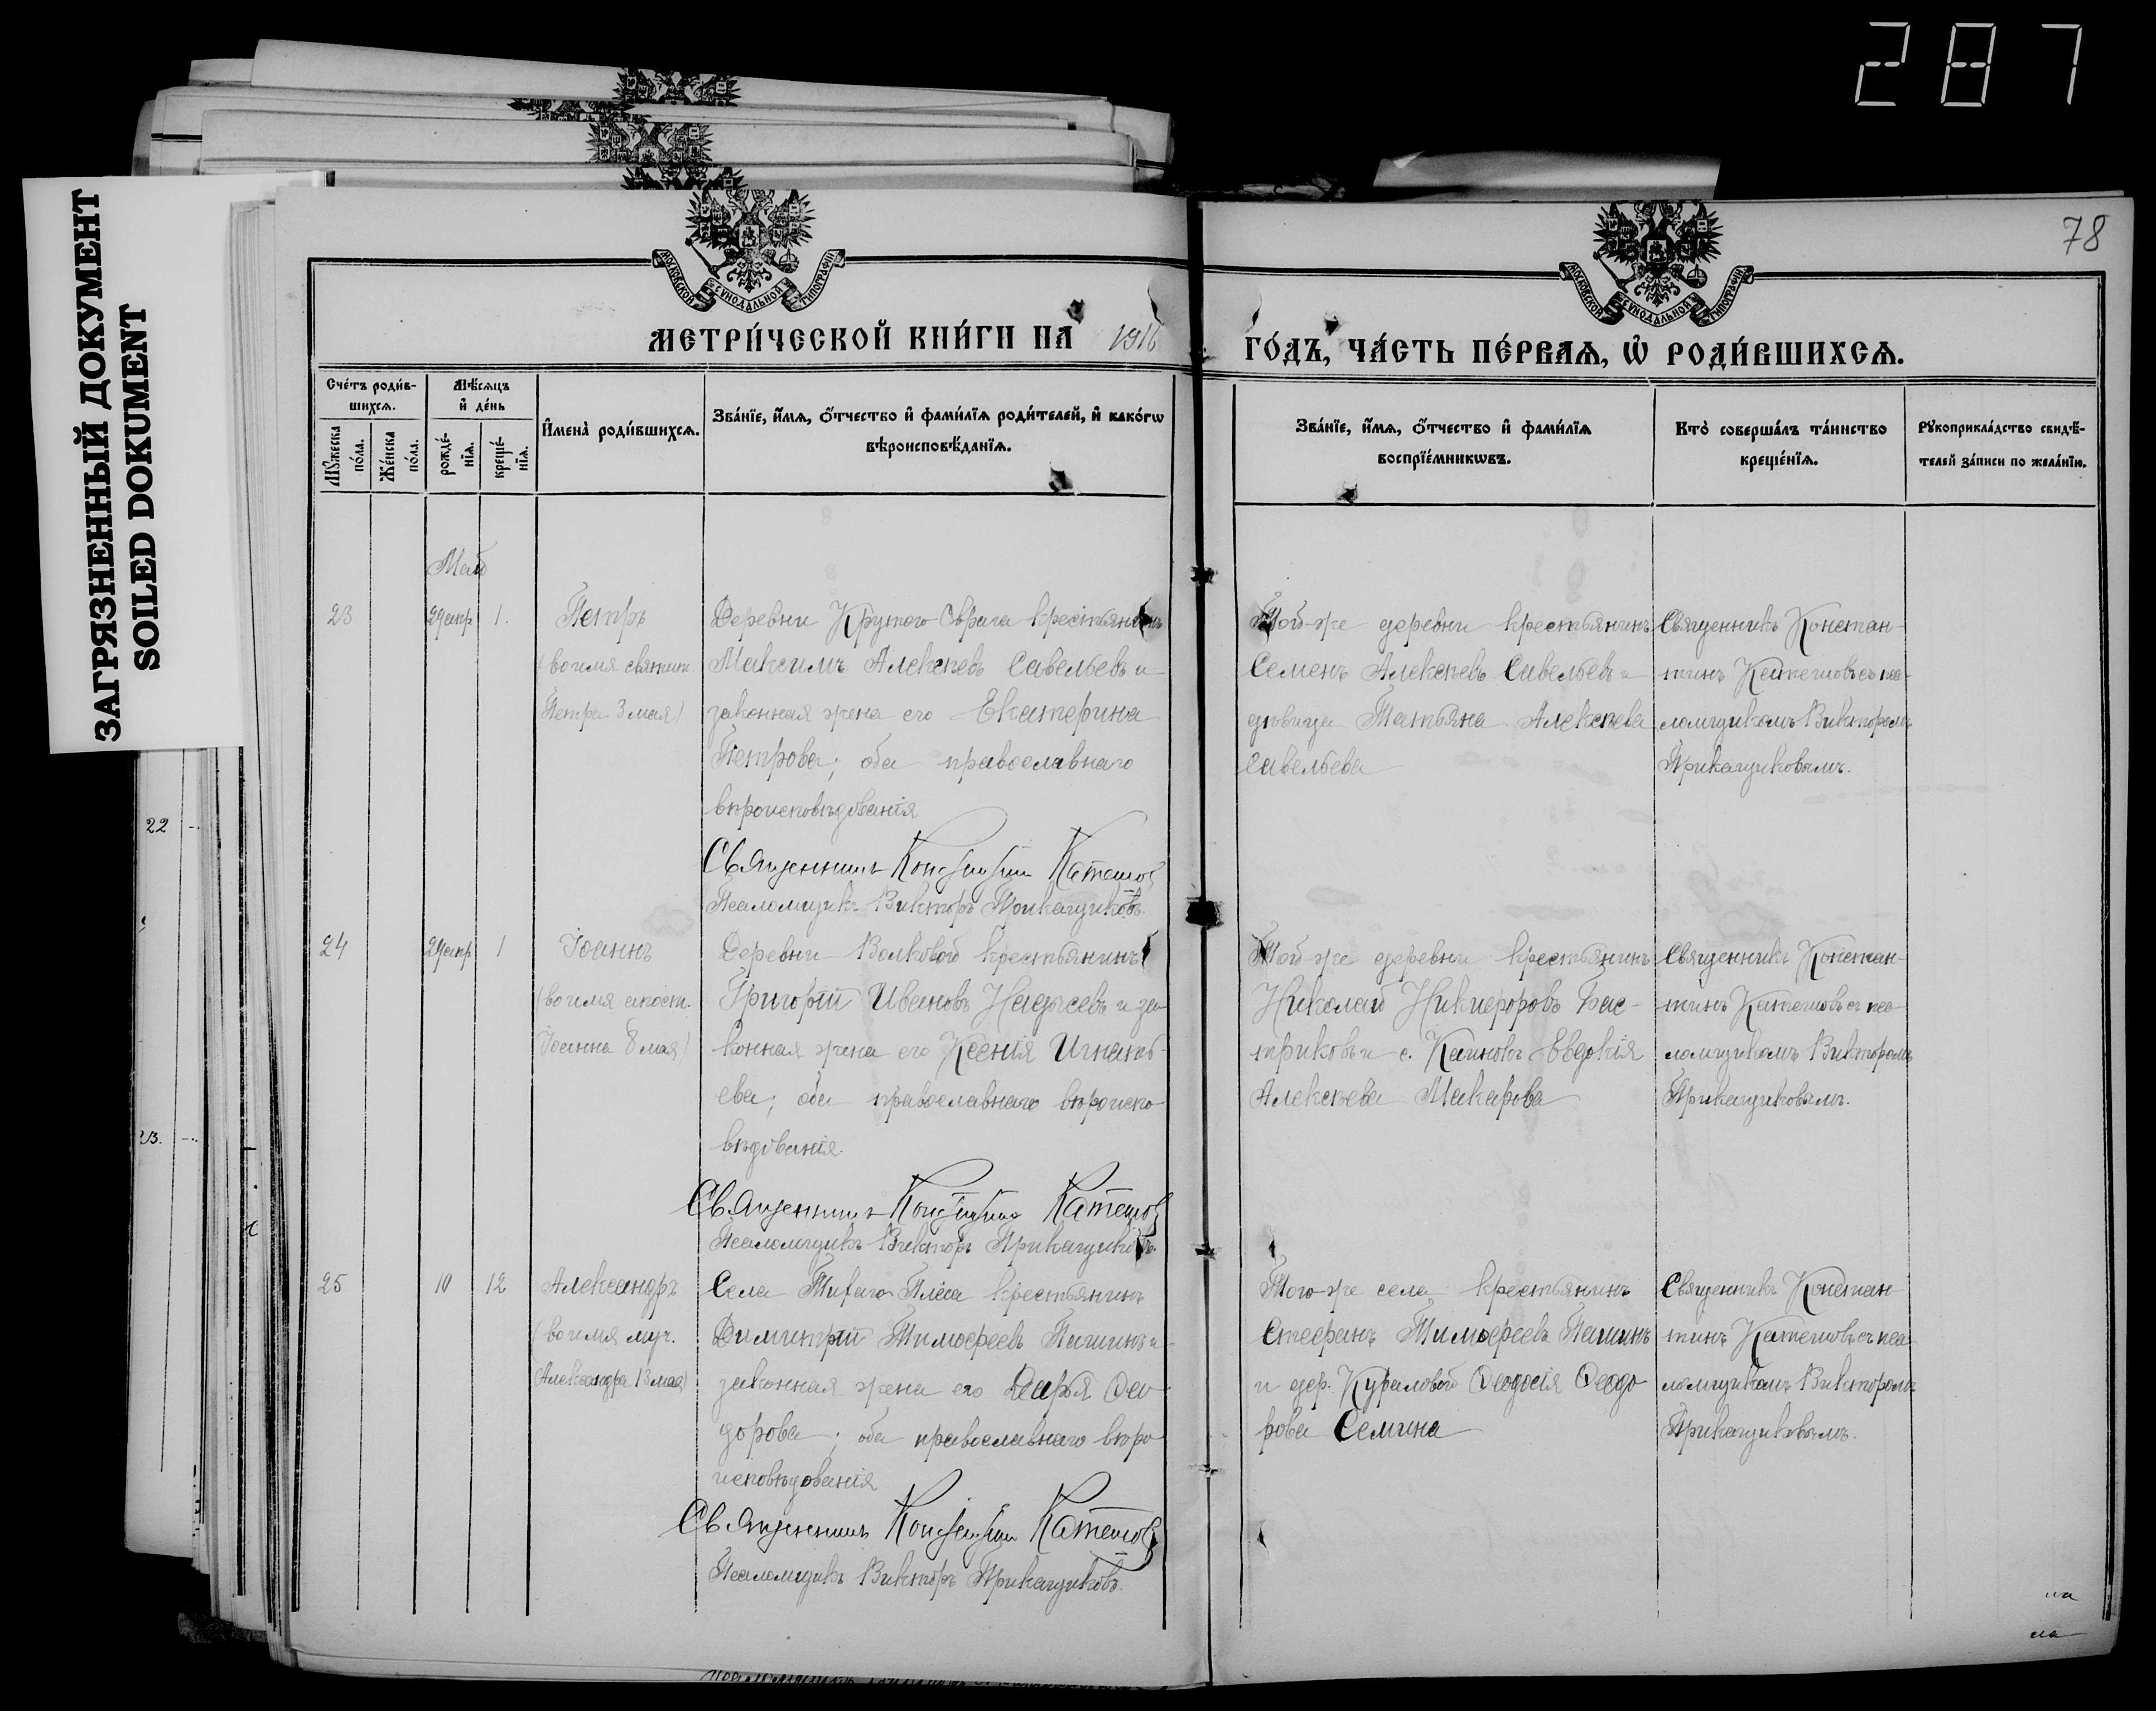 287
ЗАГРЯЗНЕННЫЙ ДОКУМЕНТ
SOILED DOKUMENT
78
МОСКОВСКОЙ СѴНОДАЛЬНОЙ ТИПОГРАФІИ
МОСКОВСКОЙ СѴНОДАЛЬНОЙ ТИПОГРАФІИ
МЕТРИ́ЧЕСКОЙ КНИ́ГИ НА 1916
ГО́ДЪ, ЧА́СТЬ ПЕ́РВАѦ, Ѡ҆ РОДИ́ВШИХСѦ.
Сче́тъ роди́в-
шихсѧ.
Мѣ́сѧцъ
и҆ де́нь
Мꙋ́жеска
по́ла.
Же́нска
по́ла.
рожде́-
нїѧ.
креще́-
нїѧ.
И҆мена̀ роди́вшихсѧ.
Зва́нїе, и҆́мѧ, ѻ҆́тчество и҆ фами́лїѧ роди́телей, и҆ како́гѡ
вѣроисповѣ́данїѧ.
Зва́нїе, и҆́мѧ, ѻ҆́тчество и҆ фами́лїѧ
воспрїе́мникѡвъ.
Кто̀ соверша́лъ та́инство
креще́нїѧ.
Рꙋкоприкла́дство свидѣ́-
телей за́писи по жела́нїю.
Май
23
29 апр
1.
Петръ
(во имя святит.
Петра 3 мая)
Деревни Крутого Оврага крестьянинъ
Максимъ Алексѣевъ Савельевъ и
законная жена его Екатерина
Петрова; оба православнаго
вѣроисповѣдованія
Священникъ Константин Катешов
Псаломщикъ Викторъ Прикащиковъ.
Той-же деревни крестьянинъ
Семенъ Алексѣевъ Савельевъ и
дѣвица Татьяна Алексѣева
Савельева
Священникъ Констан-
тинъ Катешовъ съ пса-
ломщикомъ Викторомъ
Прикащиковымъ.
24
29 апр
1
Іоаннъ
(во имя апост.
Іоанна 8 мая)
Деревни Волковой крестьянинъ
Григорій Ивановъ и за-
конная жена его Ксенія Игнать-
ева; оба православнаго вѣроиспо-
вѣдованія
Священникъ Константин Катешов
Псаломщикъ Викторъ Прикащиковъ
Той-же деревни крестьянинъ
Николай Никифоровъ Бас-
триковъ и с. Каиновъ Евдокія
Алексѣева Макарова
Священникъ Констан-
тинъ Катешовъ съ пса-
ломщикомъ Викторомъ
Прикащиковымъ.
25
10
12
Александръ
(во имя муч.
Александра 13 мая)
Села Тихаго Плеса крестьянинъ
Димитрій Тимоѳеевъ Пашинъ и
законная жена его Дарья Ѳео-
дорова; оба православнаго вѣро
исповѣдованія
Священникъ Константин Катешов
Псаломщикъ Викторъ Прикащиковъ.
Того-же села крестьянинъ
Стефанъ Тимоѳеевъ Пашинъ
и дер. Кураловой Ѳеодосія Ѳеодо
рова Семина
Священникъ Констан-
тинъ Катешовъ съ пса-
ломщикомъ Викторомъ
Прикащиковымъ.
22
23.